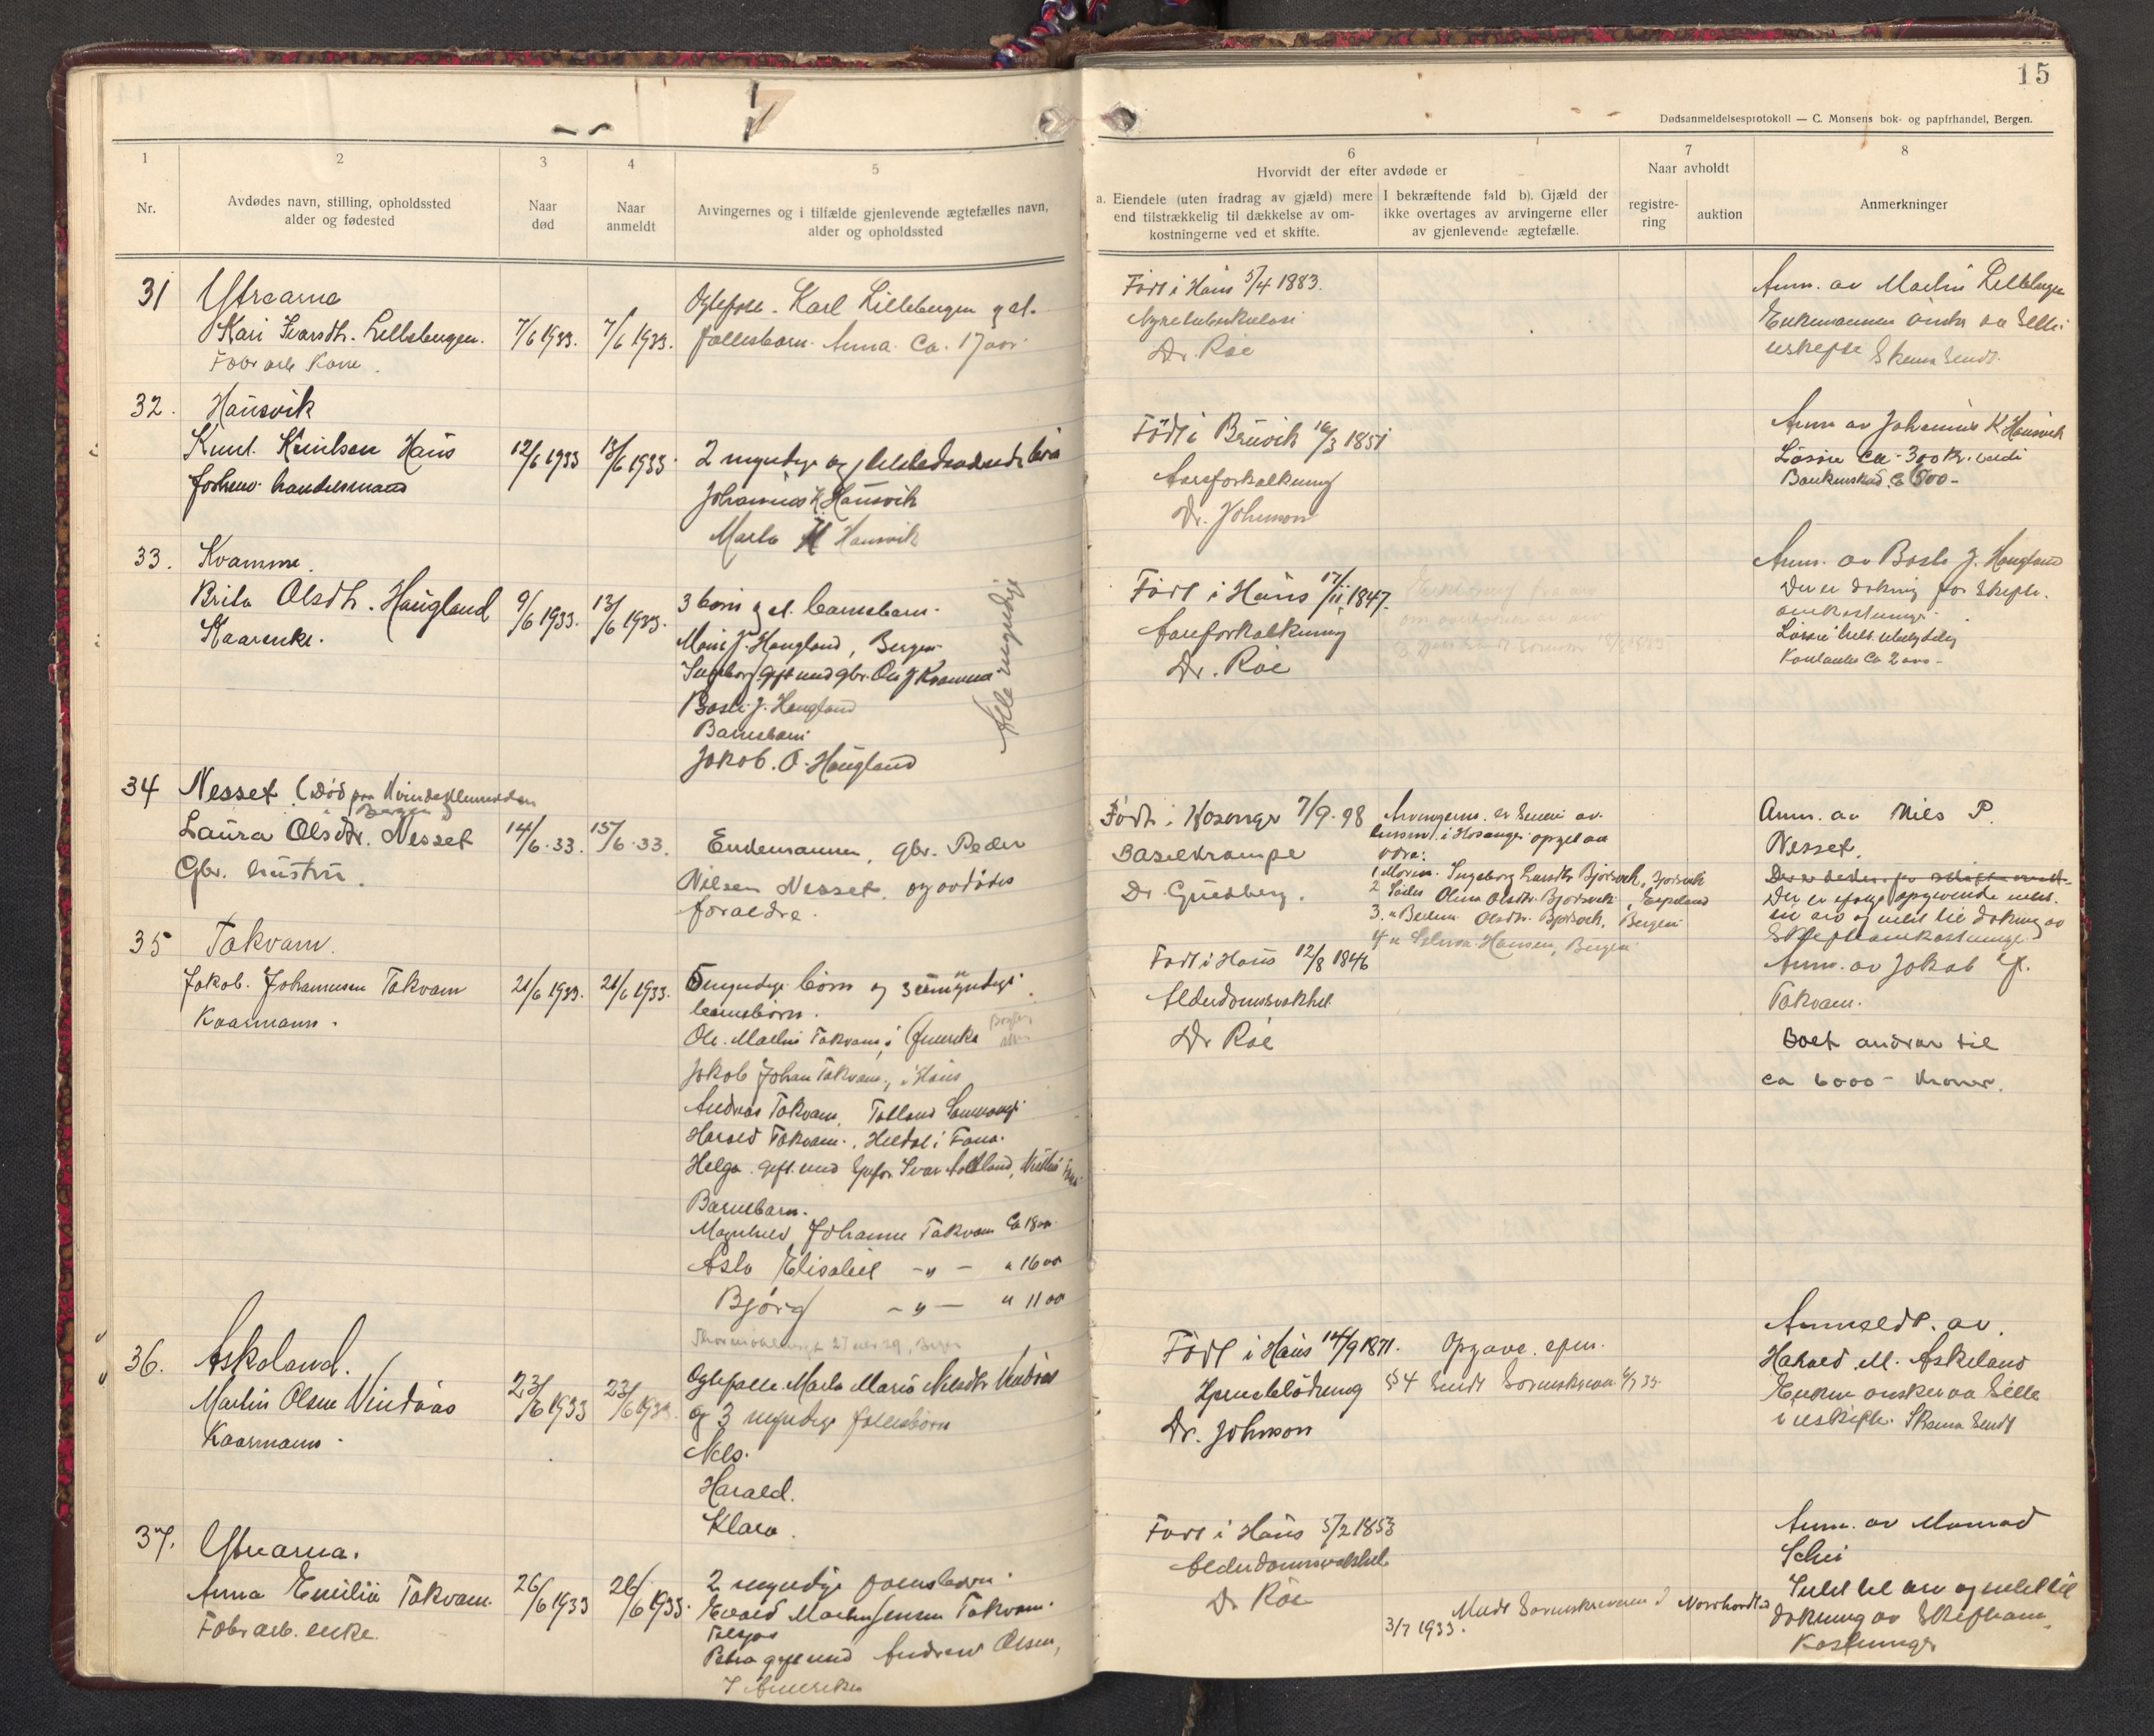 15
Dødsanmeldelsesprotokoll — C. Monsens bok- og papirhandel, Bergen.
1
Nr.
2
Avdødes navn, stilling, opholdssted
alder og fødested
3
Naar
død
4
Naar
anmeldt
5
Arvingernes og i tilfælde gjenlevende ægtefælles navn,
alder og opholdssted
6
Hvorvidt der efter avdøde er
a. Eiendele (uten fradrag av gjæld) mere
end tilstrækkelig til dækkelse av om-
kostningerne ved et skifte.
I bekræftende fald b). Gjæld der
ikke overtages av arvingerne eller
av gjenlevende ægtefælle.
7
Naar avholdt
registre-
ring
auktion
8
Anmerkninger
31
Ytrearna
Kari Ivarsdtr. Lillebergen.
Fabr arb Kone.
7/6 1933.
7/6 1933.
Ektefelle. Karl Lillebergen og et.
fellesbarn. Anna. Ca. 17 aar.
Født i Haus 5/4 1883.
Nyretuberkulose
Dr. Roe
Anm. av Martin Lillebergen
Enkemannen ønsker aa sitte
uskifte Skema sendt.
32.
Hausvik
Knut. Knutsen Haus
forhenv. handelsmand
12/6 1933
13/6 1933.
2 myndige og tilstedeværende barn
Johannes K. Hausvik
Marta K Hausvik
Født i Bruvik 16/3 1851
Aareforkalkning
Dr. Johnson
Anm av Johannes K Hausvik
Løsøre ca. 300 kr. verdi
Bankinskud. ca 800 -
33.
Kvamme.
Brita Olsdtr. Haugland
Kaarenke.
9/6 1933.
13/6 1933.
3 barn og et. barnebarn.
Mons J. Haugland, Bergen
Ingeborg gift med gbr. Ole J Kvamme
Basti J. Haugland
Barnebarn
Jakob. O. Haugland
Alle myndige
Født i Haus 17/11 1847.
Aareforkalkning
Dr. Roe
Anm. av Basti J. Haugland
Der er dekning for skifte.
omkostninger.
Løsøre helt ubetydelig
Kontanter ca 200 -
34
Nesset (Død paa Kvindeklinikken
i Bergen)
Laura Olsdtr. Nesset
Gbr. hustru.
14/6.33.
15/6.33.
Enkemannen, gbr. Peder
Nilsen Nesset. og avdødes
foreldre.
Født i Hosanger 7/9.98
Basilkrampe
Dr. Guldberg.
Arvingerne er senere av
lensm. i Hosanger opgit aa
være:
1 Moren. Ingeborg Larsdtr Bjørsvik, Bjørsvik
2 Søster Olina Olsdtr. Bjørsvik, Espeland
3. " Berlina Olsdtr. Bjørsvik, Bergen
4 " Hansen, Bergen
Anm. av Nils P.
Nesset.
Der er efter opgivende intet.
en arv og intet til dekning av
Skifteomkostninger
35
Takvam.
Jakob. Johannesen Takvam
Kaarmann.
21/6 1933.
21/6 1933.
5 myndige barn og 3 umyndige
barnebarn.
Ole. Martin Takvam, i Amerika
Jakob Johan Takvam, i Haus
Andreas Takvam, Tolland Samnanger
Harald Takvam., Heldal i Fana.
Helga. gift med Ivar
Barnebarn.
Magnhild Johanne Takvam Ca 18 aar.
Asta Elisabet - " - " 16 aar
Bjørg - " - " 11 aar
Født i Haus 12/8 1846
Alderdomsvakhet
Dr Roe
Anm. av Jakob J.
Takvam.
Boet andrar til
ca 6000 - Kroner.
36.
Askeland.
Martin Olsen Vindnæs
Kaarmann.
23/6 1933
23/6 1933.
Ektefelle. Marta Maria Nilsdtr
og 3 myndige fellesbarn
Nils.
Harald.
Klara.
Født i Haus 14/9 1871.
Hjerneblødning
Dr. Johnson
Opgave. efter.
§ 4 sendt Sorenskriveren 4/7 33.
Anmeldt. av
Harald M. Askeland
Enken ønsker aa sitte
i uskifte. Skema sendt
37.
Ytrearna.
Anna Emilie Takvam.
Fabr arb. enke.
26/6 1933
26/6 1933.
2 myndige
Takvam.
Petra gift med Andrew Olsen,
I Amerika
Født i Haus 5/2 1853
Alderdomsvakhet
Dr Roe
Meldt Sorenskriveren i Nordhordland
3/7 1933.
Anm. av Monrad
Schei
Intet til arv og intet til
dekning av Skifteom-
kostninger